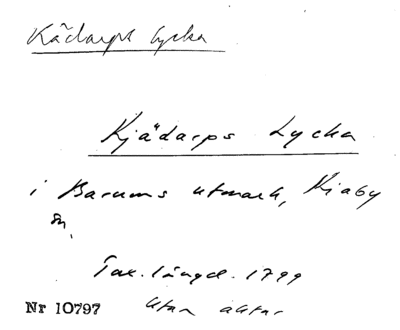 Kådarps lycka
Kjädarps Lycka
i Barums utmark, Kiaby
sn.
Tax. längd. 1799
Nr 10797 Utan aktar